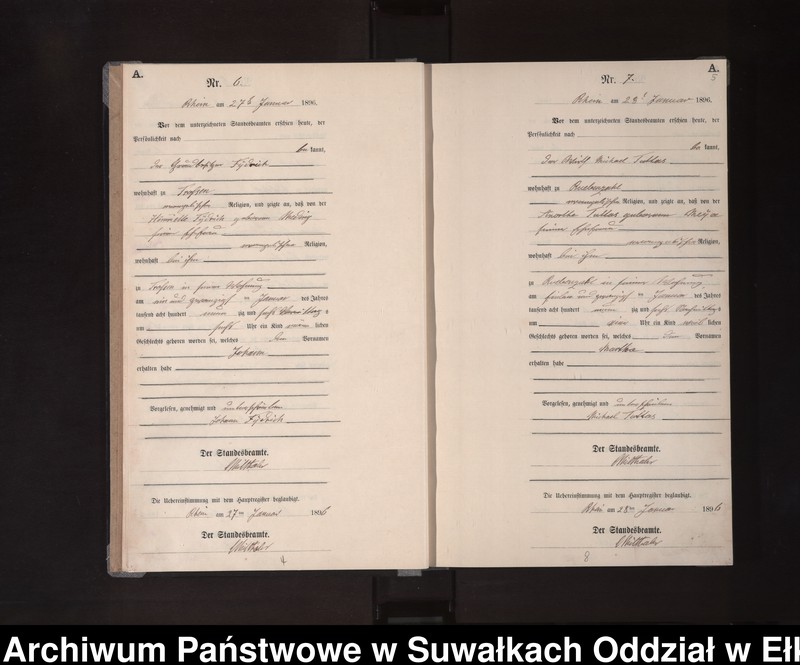 A.
Nr. 6.
Rhein am 27t Januar 1896.
Vor dem unterzeichneten Standesbeamten erschien heute, der
Persönlichkeit nach
be kannt,
der Grundbesitzer
wohnhaft zu
evangelischer Religion, und zeigte an, daß von der
geborenen
seiner Ehefrau
evangelischer Religion,
wohnhaft bei ihm
zu in seiner Wohnung
am ein und zwanzigsten Januar des Jahres
tausend acht hundert neun zig und sechs
um Uhr ein Kind männ lichen
Geschlechts geboren worden sei, welches den Vornamen
Johann
erhalten habe
Vorgelesen, genehmigt und unterschrieben
Johann
Der Standesbeamte.
Die Uebereinstimmung mit dem Hauptregister beglaubigt.
Rhein am 27ten Januar 1896
Der Standesbeamte.
4
A.
5
Nr. 7.
Rhein am 28t Januar 1896.
Vor dem unterzeichneten Standesbeamten erschien heute, der
Persönlichkeit nach
be kannt,
Der Michael Tuttas
wohnhaft zu
evangelischer Religion, und zeigte an, daß von der
Tuttas geborenen
seiner Ehefrau
evangelischer Religion,
wohnhaft bei ihm
zu in seiner Wohnung
am und zwanzigsten Januar des Jahres
tausend acht hundert neun zig und sechs
um Uhr ein Kind weib lichen
Geschlechts geboren worden sei, welches den Vornamen
Martha
erhalten habe
Vorgelesen, genehmigt und unterschrieben
Michael Tuttas
Der Standesbeamte.
Die Uebereinstimmung mit dem Hauptregister beglaubigt.
Rhein am 28ten Januar 1896
Der Standesbeamte.
8
Archiwum Państwowe w Suwałkach Oddział w Ełk